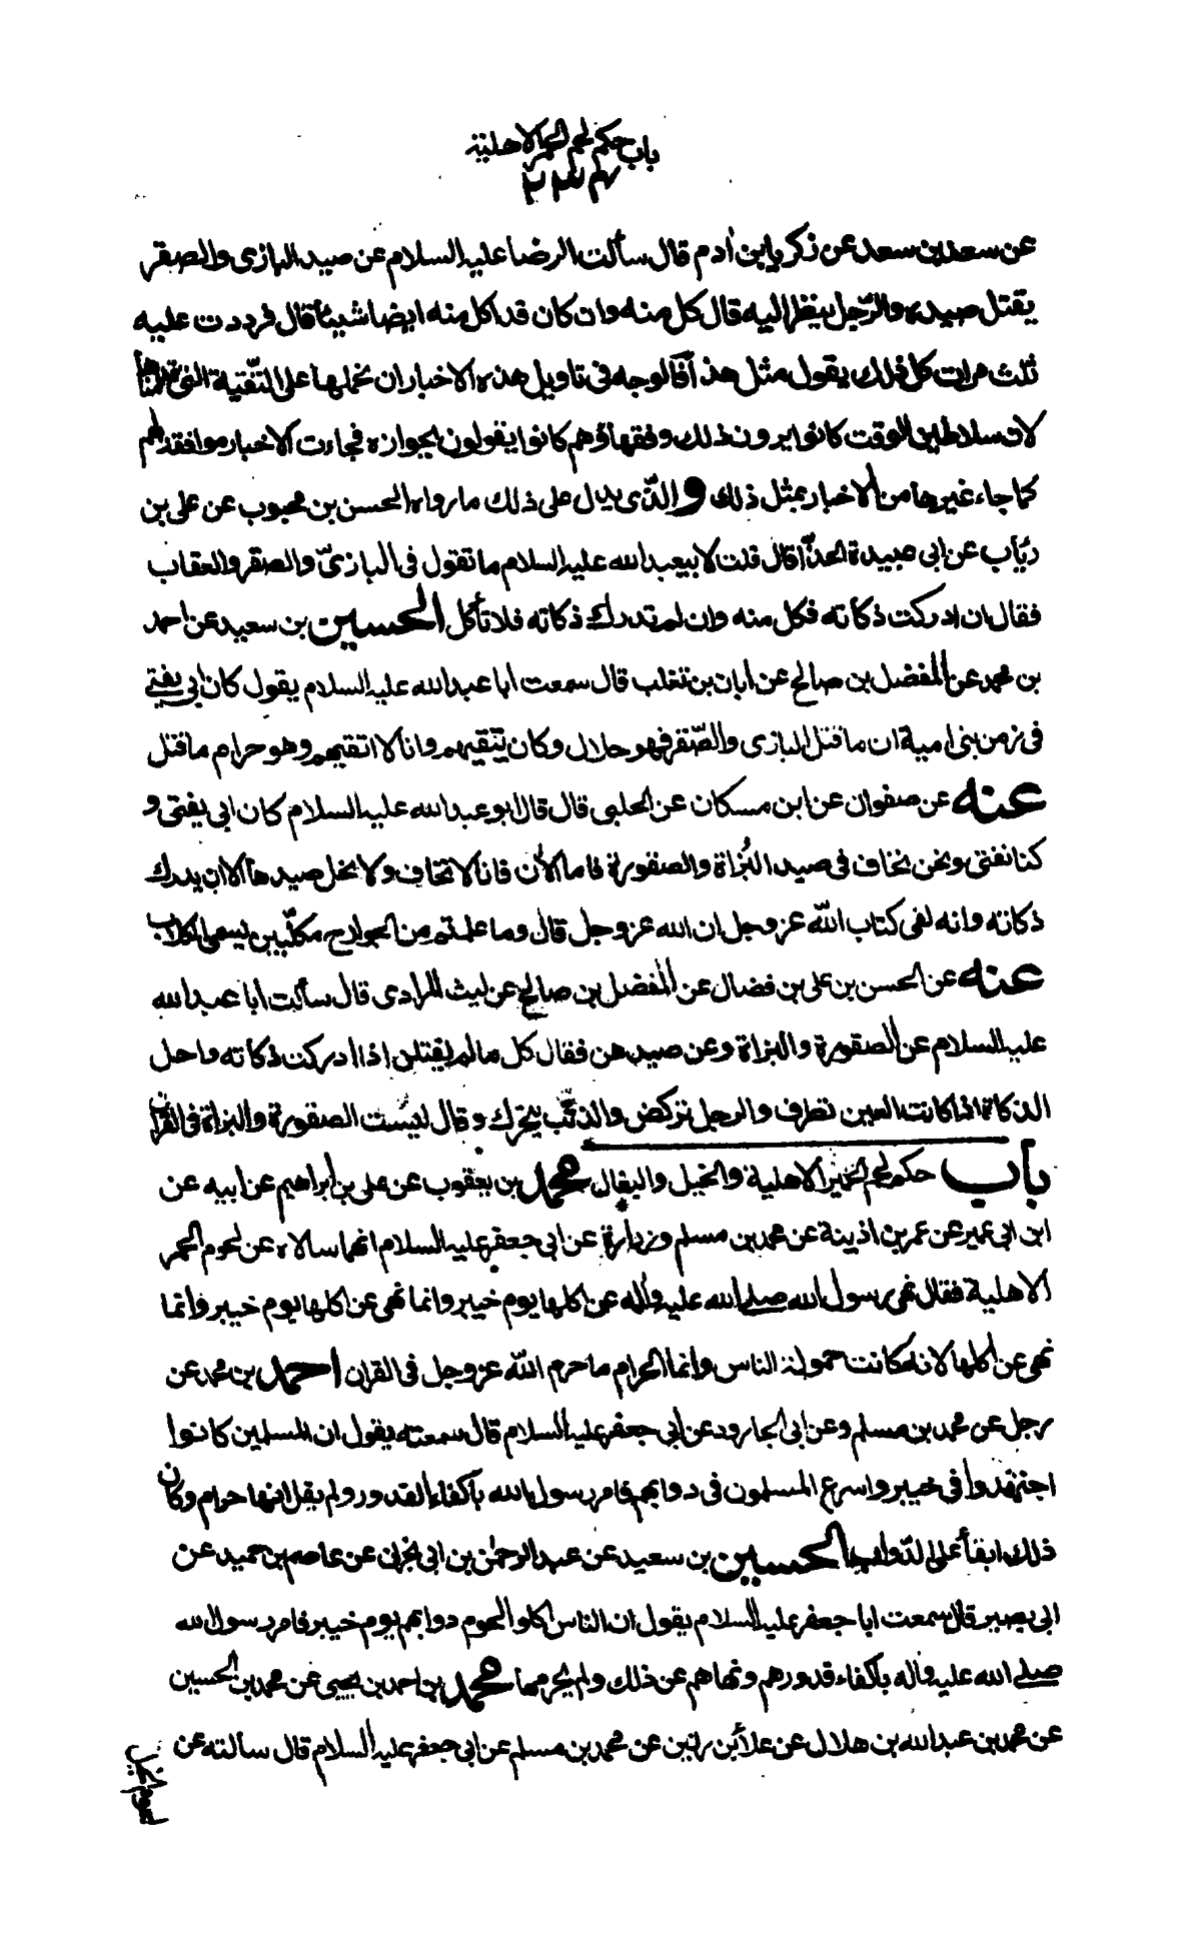 باب حكم لحم الحمر الاهلية
عن سعد بن سعد عن زكريا بن ادم قال سألت الرضا عليه السلام عن صيد البازى والصقر
يقتل صيده والرّجل ينظر اليه قال كل منه وان كان قد اكل منه ايضا شيئا قال فرددت عليه
ثلث مرات كل ذلك يقول مثل هذا فالوجه فى تاويل هذه الاخبار ان نحملها على التّقية التى
لان سلاطين الوقت كانوا يرون ذلك وفقهاؤهم كانوا يقولون بجوازه فجاءت الاخبار موافقة لهم
كما جاء غيرها من الاخبار بمثل ذلك والّذى يدل على ذلك ما رواه الحسن بن محبوب عن على بن
رئاب عن ابى عبيدة الحذّا قال قلت لابيعبد الله عليه السلام ما تقول فى البازىّ والصقر والعقاب
فقال ان ادركت ذكاته فكل منه وان لم تدرك ذكاته فلا تأكل الحسين بن سعيد عن احمد
بن محمد عن المفضل بن صالح عن ابان بن تغلب قال سمعت ابا عبد الله عليه السلام يقول كان ابى يفتى
فى زمن بنى امية ان ما قتل البازى والصّقر فهو حلال وكان يتقيهم وانا لا اتقيهم وهو حرام ما قتل
عنه عن صفوان عن ابن مسكان عن الحلبى قال قال ابو عبد الله عليه السلام كان ابى يفتى و
كنا نفتى ونحن نخاف فى صيد البُزاة والصقورة فاما الأن فانا لا نخاف ولا يحل صيدها الا ان يدرك
ذكاته وانه لفى كتاب اللّه عز وجل ان الله عز وجل قال وما علمتم من الجوارح مكلّبين يسمى الكلاب
عنه عن الحسن بن على بن فضال عن المفضل بن صالح عن ليث المرادى قال سألت ابا عبد الله
عليه السلام عن الصقورة والبزاة وعن صيدهن فقال كل ما لم يقتلن اذا ادركت ذكاته واخل
الذكاة اذا كانت العين تطرف والرجل تركض والذنب يتحرك وقال ليست الصقورة والبزاة فى القرآن
باب حكم لحم الحمير الاهلية والخيل والبغال محمد بن يعقوب عن على بن ابراهيم عن ابيه عن
ابن ابى عمير عن عمر بن اذينة عن محمد بن مسلم وزرارة عن ابى جعفر عليه السلام انهما سالاه عن لحوم الحمر
الاهلية فقال نهى رسول الله صلى الله عليه وآله عن اكلها يوم خيبر وانما نهى عن اكلها يوم خيبر وانما
نهى عن اكلها لانه كانت حمولة الناس وانما الحرام ما حرم اللّه عز وجل فى القران احمد بن محمد عن
رجل عن محمد بن مسلم وعن ابى الجارود عن ابى جعفر عليه السلام قال سمعته يقول ان المسلمين كانوا
اجتهدوا فى خيبر واسرع المسلمون فى دوابهم فامر رسول الله بأكفاء القدور ولم يقل انها حرام وكان
ذلك ابقأ على الدّواب الحسين بن سعيد عن عبد الرحمن بن ابى نجران عن عاصم بن حميد عن
ابى بصير قال سمعت ابا جعفر عليه السلام يقول ان الناس اكلوا لحوم دوابهم يوم خيبر فامر رسول الله
صلى الله عليه وآله بأكفاء قدورهم ونهاهم عن ذلك ولم يحرمها محمد بن احمد بن يحيى عن محمد بن الحسين
عن محمد بن عبد الله بن هلال عن علاء بن رزين عن محمد بن مسلم عن ابى جعفر عليه السلام قال سألته عن